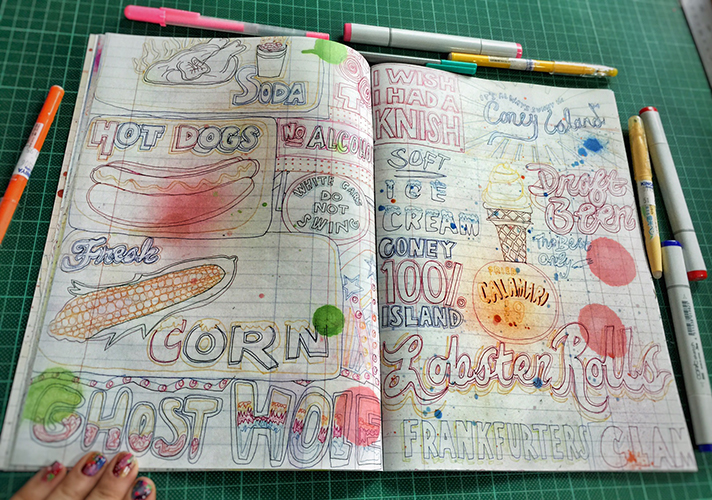 SODA
HOT DOGS
NO ALCOHOL
WHITE CARS
DO
NOT
SWING
Fresh
CORN
GHOST HOLE
I WISH
I HAD A
KNISH
Coney Island
SOFT
ICE
CREAM
Draft
Beer
The Best
Only
CONEY
100%
ISLAND
FRIED
CALAMARI
Lobster Rolls
FRANKFURTERS CLAM